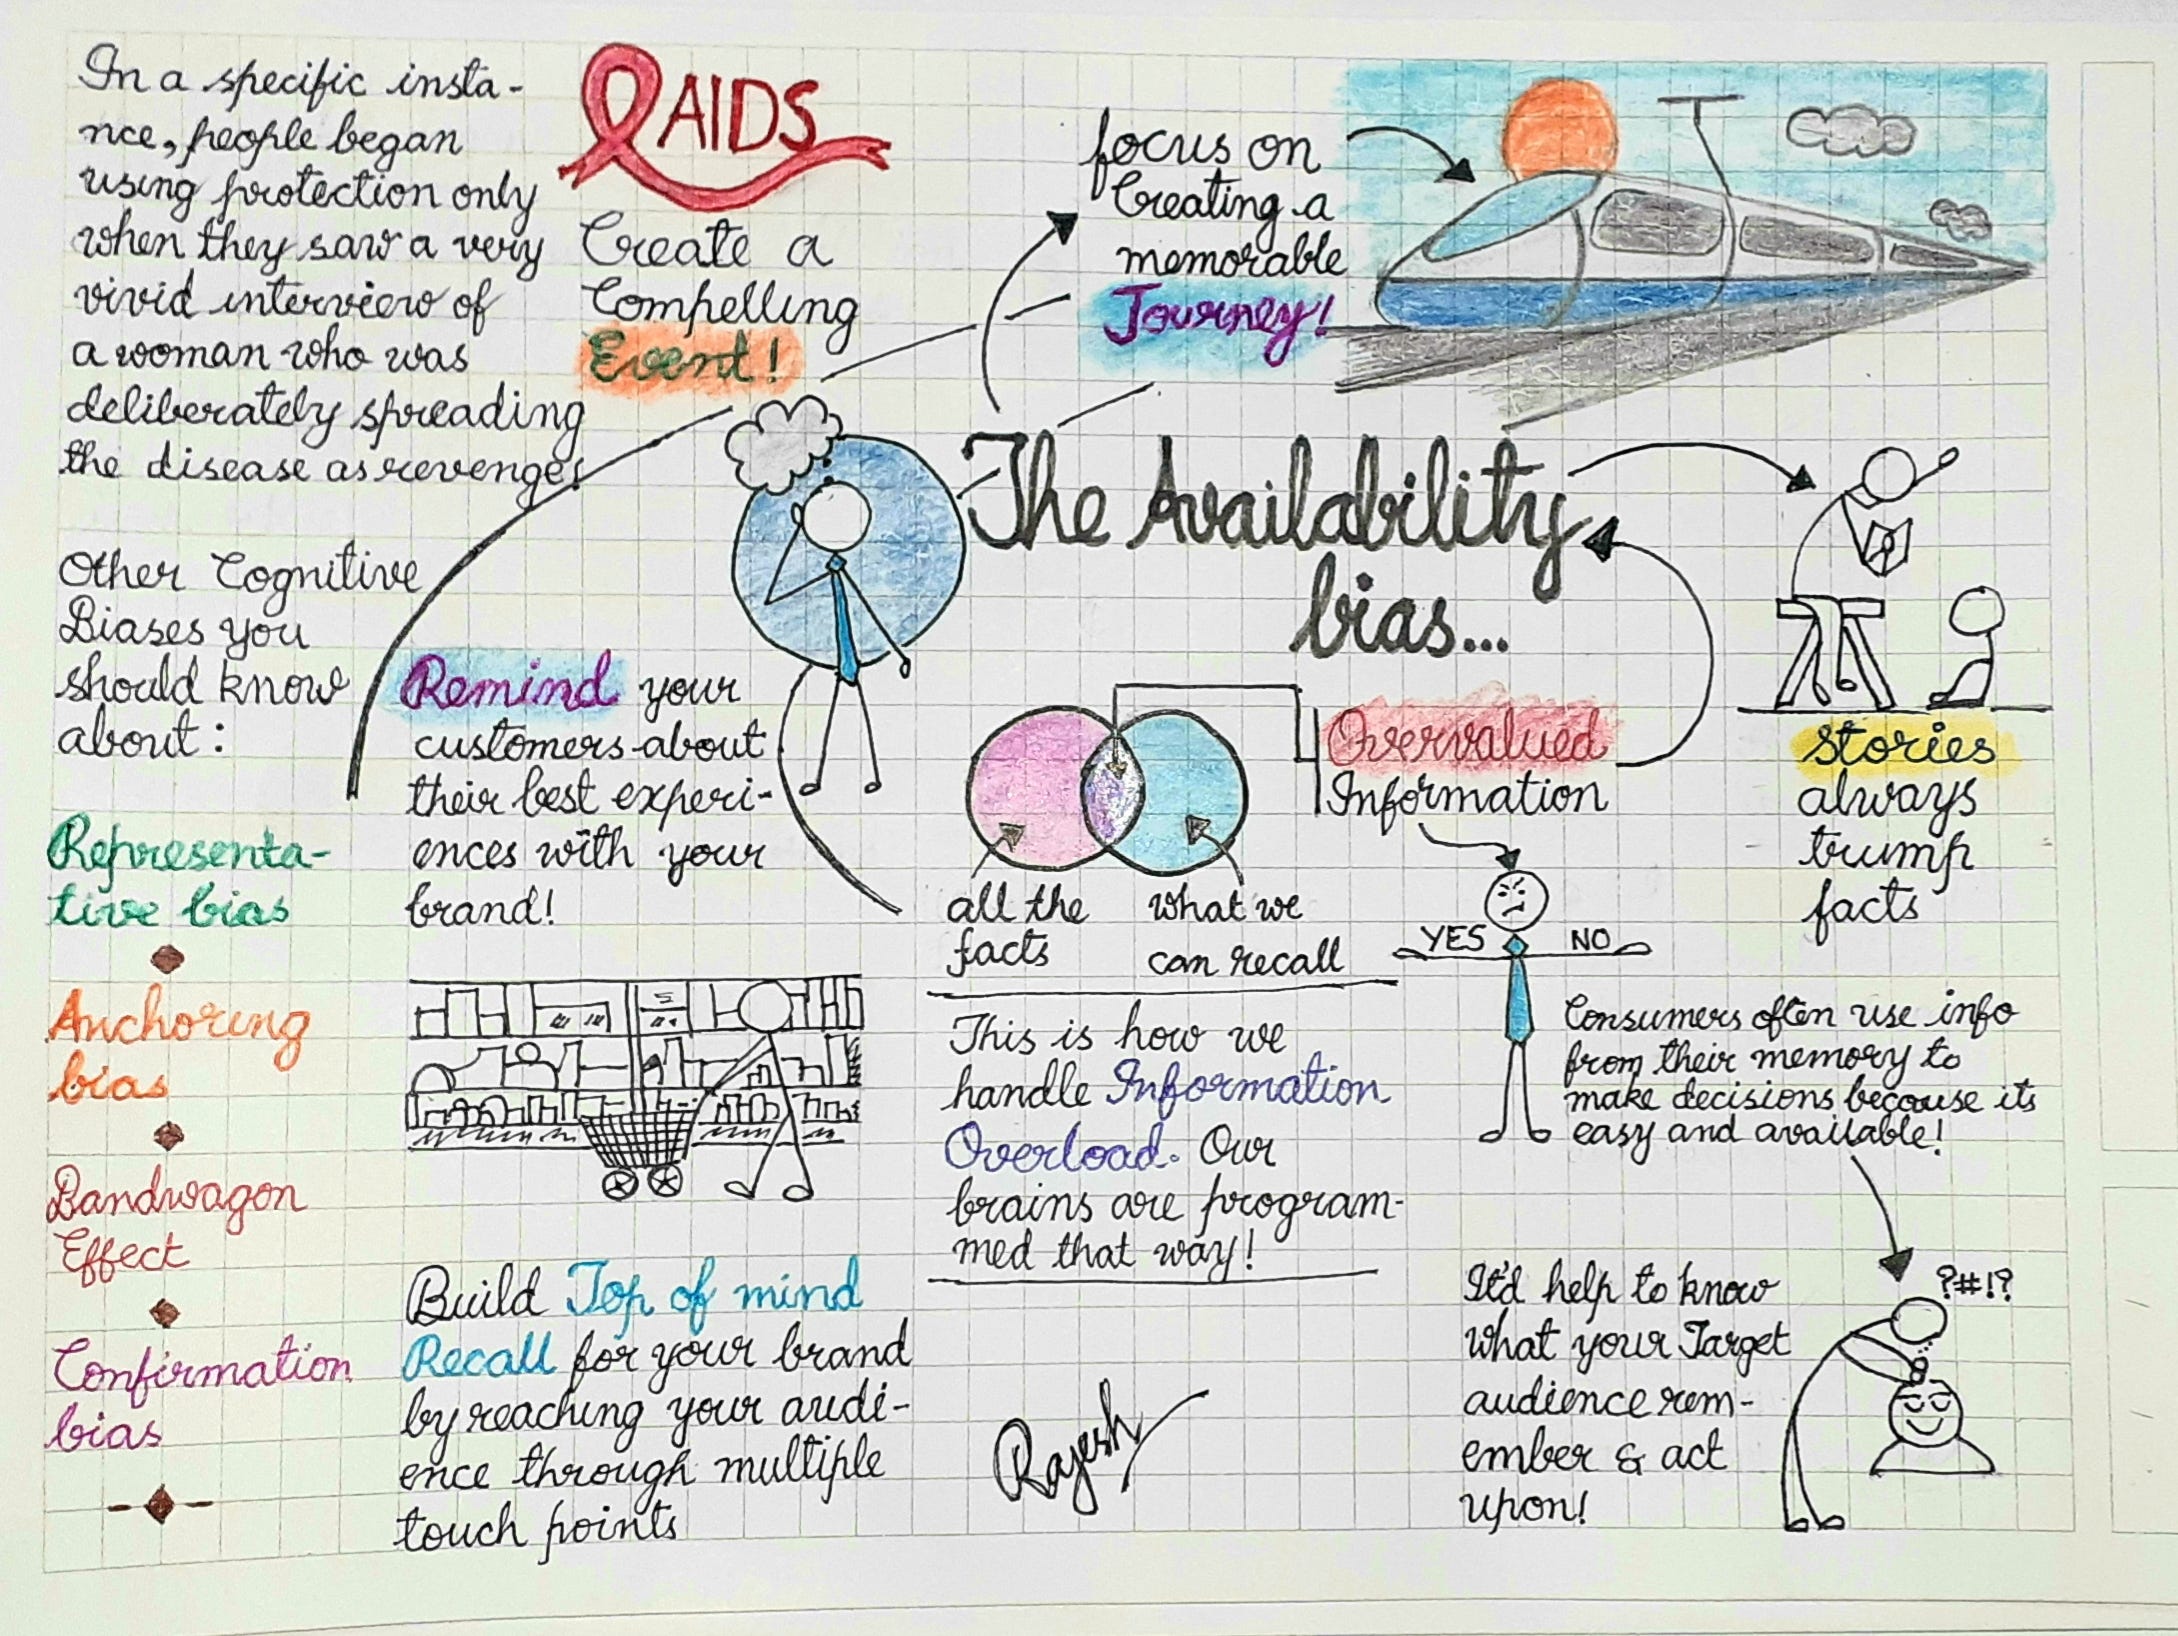 In a specific insta-
nce, people began
using protection only
when they saw a very
vivid interview of
a woman who was
deliberately spreading
the disease as revenge!
AIDS
Create a
Compelling
Event!
focus on
Creating a
memorable
Journey!
The Availability
bias...
Other Cognitive
Biases you
should know
about:
Representa-
tive bias
Anchoring
bias
Bandwagon
Effect
Confirmation
bias
Remind your
customers about
their best experi-
ences with your
brand!
Build Top of mind
Recall for your brand
by reaching your audi-
ence through multiple
touch points
Overvalued
Information
all the
facts
what we
can recall
This is how we
handle Information
Overload. Our
brains are program-
med that way!
Rajesh
stories
always
trump
facts
YES NO
Consumers often use info
from their memory to
make decisions because its
easy and available!
?#!?
It'd help to know
what your Target
audience rem-
ember & act
upon!